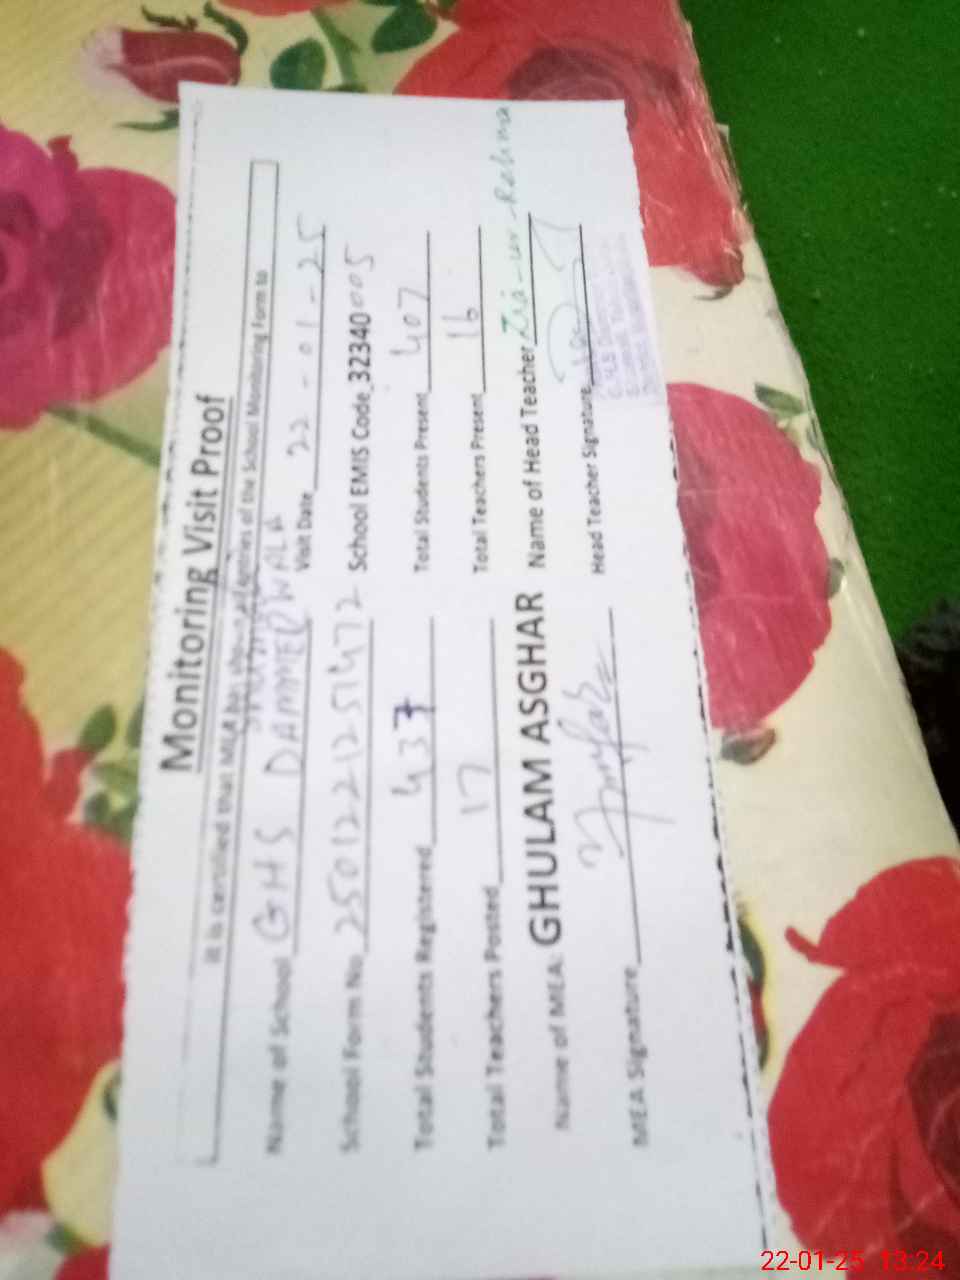 Monitoring Visit Proof
It is certified that MEA has shown all entries of the School Monitoring Form to
Name of School GHS DAMMEDWALA Visit Date 22-01-25
School Form No. School EMIS Code 32340005
Total Students Registered 437 Total Students Present 407
Total Teachers Posted 17 Total Teachers Present 16
Name of MEA: GHULAM ASGHAR Name of Head Teacher Zia-ur-Rehma
MEA Signature Head Teacher Signature
22-01-25 13:24